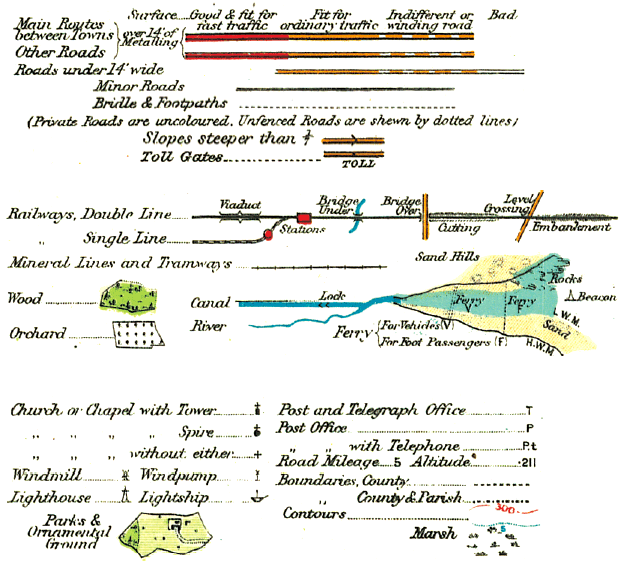 Surface Good & fit for Fit for Indifferent or Bad
fast traffic ordinary traffic winding road
Main Routes
between Towns
over 14' of
Metalling
Other Roads
Roads under 14' wide
Minor Roads
Bridle & Footpaths
(Private Roads are uncoloured, Unfenced Roads are shewn by dotted lines)
Slopes steeper than
Toll Gates
TOLL
Viaduct Bridge Under Bridge Over Level Crossing
Railways, Double Line
Stations Cutting Embankment
" Single Line
Mineral Lines and Tramways
Sand Hills
Rocks
Wood Canal Lock Ferry Ferry Beacon
V F
L.W.M.
Orchard River Sand
Ferry For Vehicles (V)
For Foot Passengers (F) H.W.M
Church or Chapel with Tower
" " " " Spire
" " " " without either +
Windmill Windpump
Lighthouse Lightship
Parks &
Ornamental
Ground
Post and Telegraph Office T
Post Office P
" " with Telephone P.t
Road Mileage 5 Altitude ·211
Boundaries, County
" County & Parish
Contours 300
5
Marsh